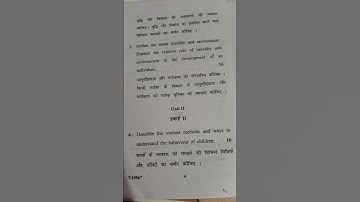 वृद्धि और विकास की अवधारणा की व्याख्या
कीजिए । वृद्धि और विकास को प्रभावित करने वाले
विभिन्न कारकों का वर्णन कीजिए ।
3. Define the terms heredity and environment.
Explain the relative role of heredity and
environment in the development of an
individual. 16
आनुवंशिकता और पर्यावरण को परिभाषित कीजिए ।
किसी व्यक्ति के विकास में आनुवंशिकता और
पर्यावरण की सापेक्ष भूमिका की व्याख्या कीजिए ।
Unit II
इकाई II
4. Describe the various methods and ways to
understand the behaviour of children. 16
बच्चों के व्यवहार को समझने की विभिन्न विधियों
और तरीकों का वर्णन कीजिए ।
4